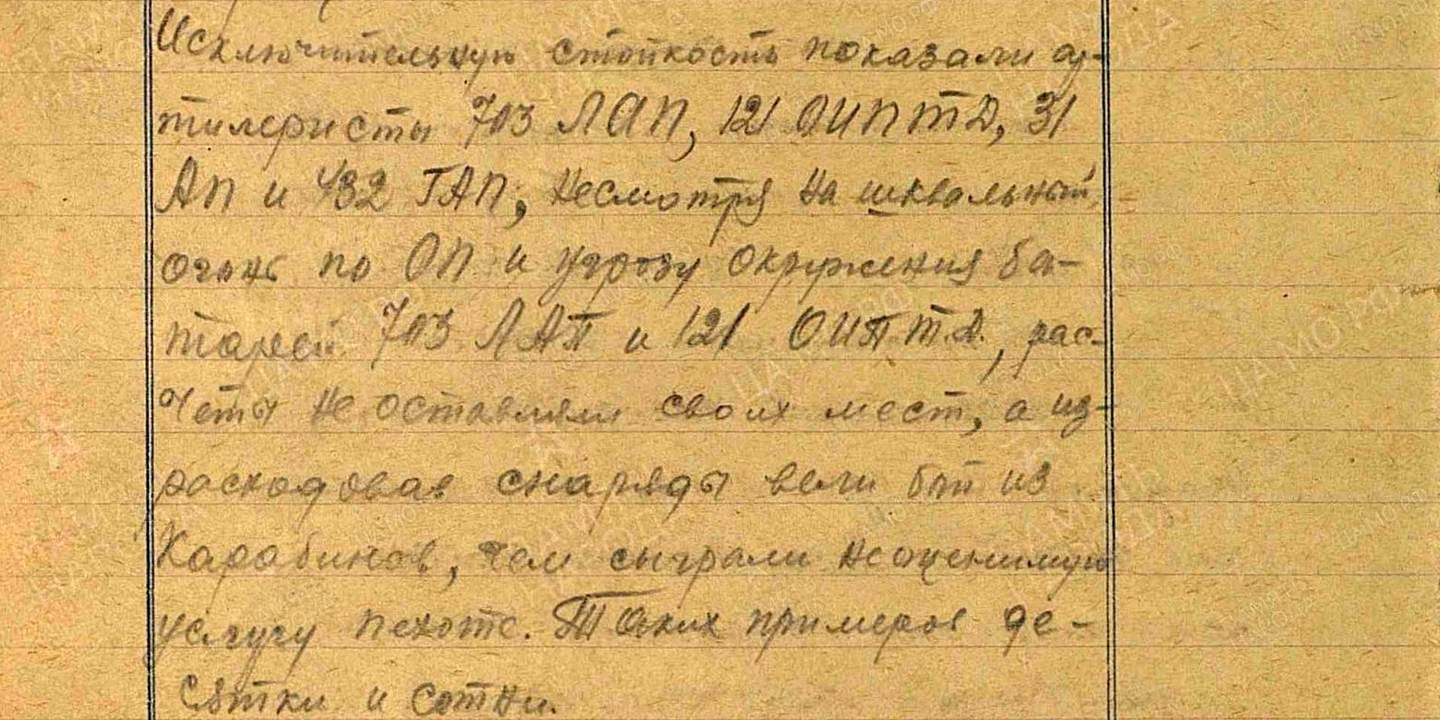 Исключительную стойкость показали ар-
тилеристы 703 ЛАП, 121 ОИПТД, 31
АП и 432 ГАП, несмотря на шквальный
огонь по ОП и угрозу окружения ба-
тарей 703 ЛАП и 121 ОИПТД, рас-
четы не оставляли своих мест, а из-
расходовав снаряды вели бой из
Карабинов, чем сыграли неоценимую
услугу пехоте. Таких примеров де-
сятки и сотни.